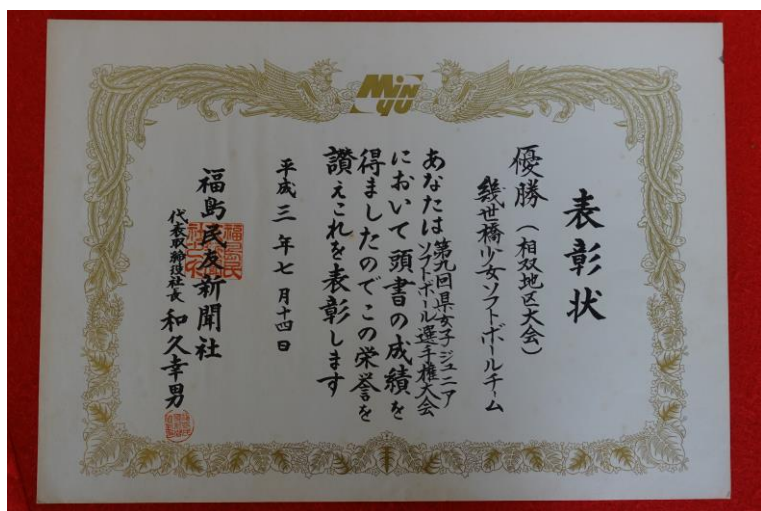 MiNYU
表彰状
優勝（相双地区大会）
幾世橋少女ソフトボールチーム
あなたは第九回県女子ジュニアソフトボール選手権大会
において頭書の成績を
得ましたのでこの栄誉を
讃えこれを表彰します
平成三年七月十四日
福島民友新聞社
代表取締役社長 和久幸男